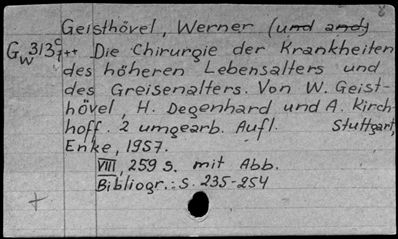 8
Geisthövel, Werner (und and)
Gw 313c/7++ Die Chirurgie der Krankheiten
des höheren Lebensalters und
des Greisenalters. Von W. Geist-
hövel, H. Degenhard und A. Kirch-
hoff. 2 umgearb. Aufl. Stuttgart,
Enke, 1957.
VIII, 259 S. mit Abb.
Bibliogr.: S. 235-254
+